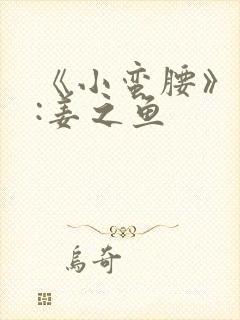 《小蛮腰》
:姜之鱼
乌奇